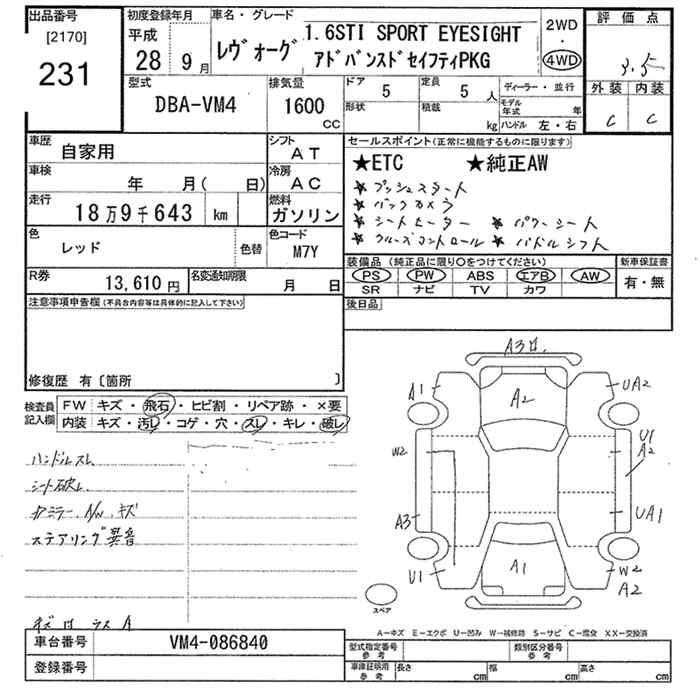 出品番号
[2170]
231
初度登録年月
平成
28年 9月
車名・グレード
レヴォーグ
1.6STI SPORT EYESIGHT
アドバンスドセイフティPKG
2WD
・
4WD
評価点
3.5
外装 内装
C C
型式
DBA-VM4
排気量
1600
CC
ドア 5
定員 5 人
形状
積載 kg
ディーラー・並行
モデル年式 年
ハンドル 左・右
車歴
自家用
シフト AT
車検
年 月( 日)
冷房 AC
走行
18万9千643 km
燃料 ガソリン
色
レッド
色替
色コード M7Y
R券 13,610円
名変通知期限 月 日
セールスポイント(正常に機能するものに限ります)
★ETC ★純正AW
★プッシュスタート
★バックカメラ
★シートヒーター ★パワーシート
★クルーズコントロール ★パドルシフト
装備品(純正品に限り○をつけてください)
PS PW ABS エアB AW
SR ナビ TV カワ
新車保証書
有・無
後日品
注意事項申告欄(不具合内容等は具体的に記入して下さい)
修復歴 有〔箇所 〕
検査員記入欄
FW キズ・飛石・ヒビ割・リペア跡・×要
内装 キズ・汚レ・コゲ・穴・スレ・キレ・破レ
ハンドルスレ
シート破レ
カミラー、A/W、キズ
ステアリング異音
A3
A1
A2
UA2
W2
U1
A2
A3
UA1
U1
A1
W2
A2
スペア
A−キズ E−エクボ U−凹み W−補修跡 S−サビ C−腐食 XX−交換済
車台番号 VM4-086840
登録番号
型式指定番号 参考
類別区分番号 参考
車庫証明用 参考
長さ cm
幅 cm
高さ cm